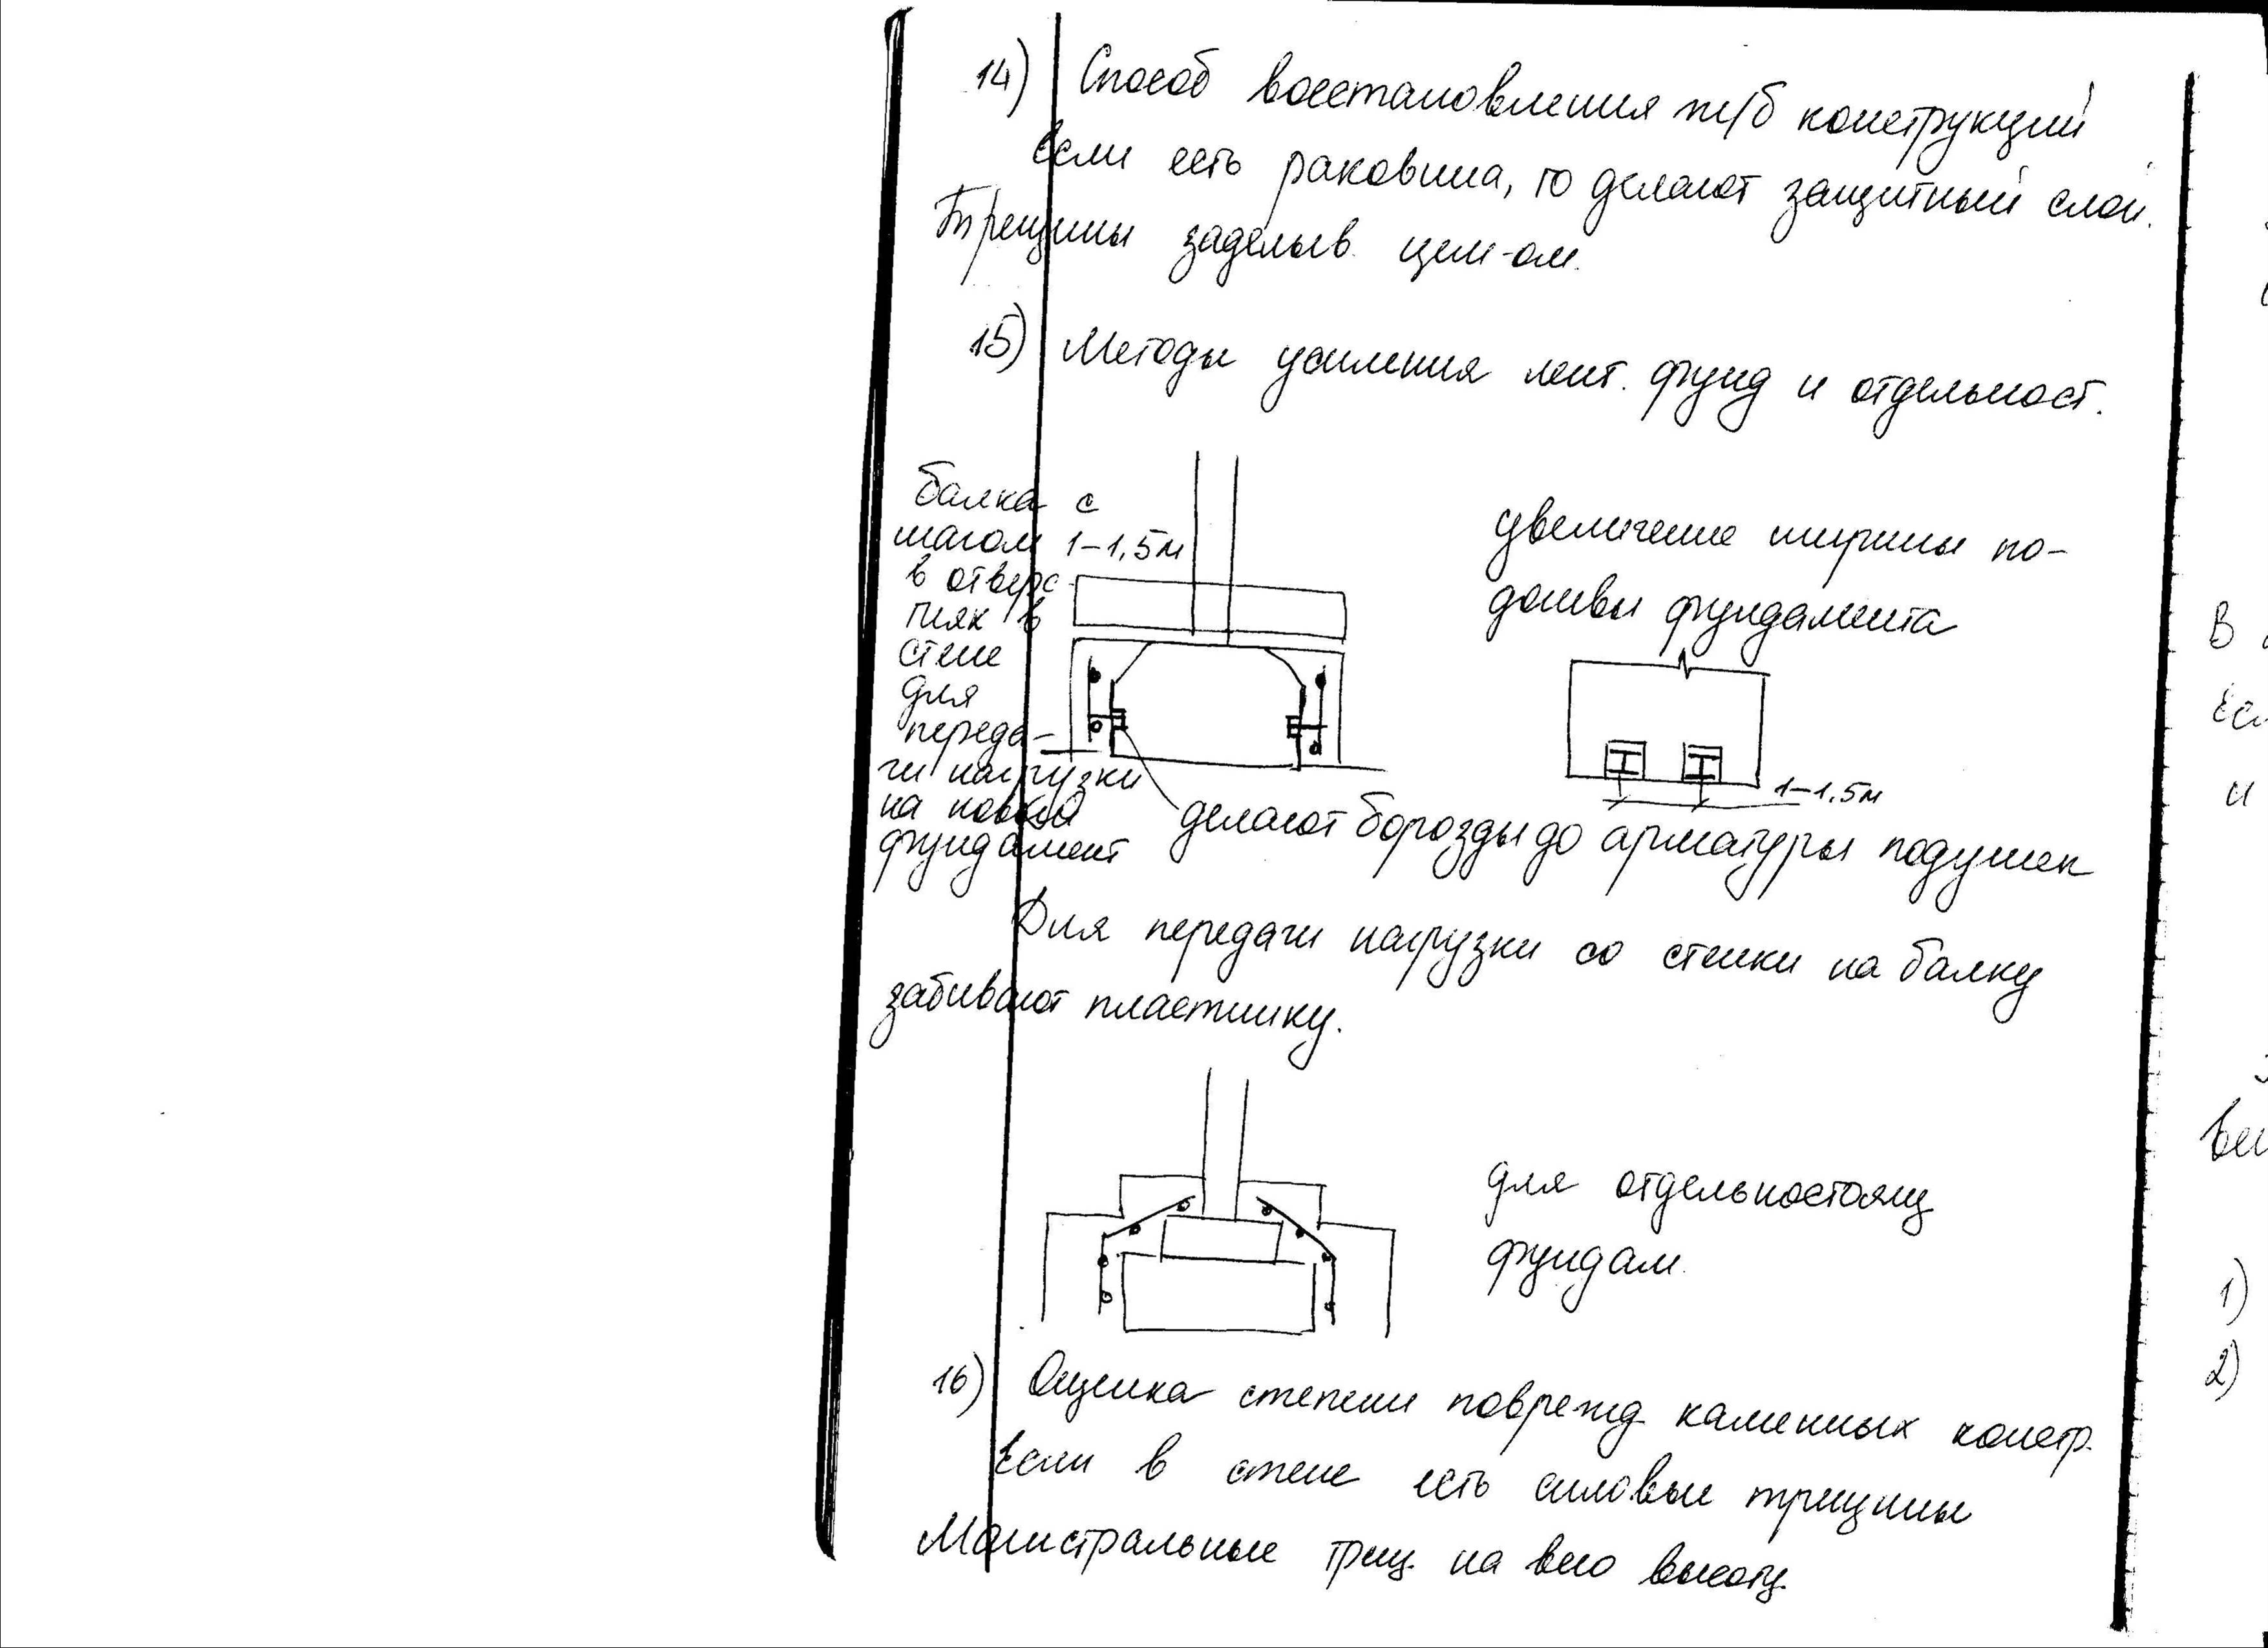 14) Способ восстановления ж/б конструкций
Если есть раковина, то делают защитный слой.
Трещины заделыв. цем-ом.
15) Методы усиления лент. фунд и отдельност.
балка с
шагом 1-1,5м
в отверс-
тиях в
стене
для
переда-
чи нагрузки
на новый
фундамент
увеличение ширины по-
дошвы фундамента
1-1,5м
делают борозды до арматуры подушек
Для передачи нагрузки со стенки на балку
забивают пластинку.
для отдельностоящ
фундам.
16) Оценка степени поврежд каменных констр.
Если в стене есть силовые трещины
Магистральные трещ. на всю высоту.
В
и
1)
2)